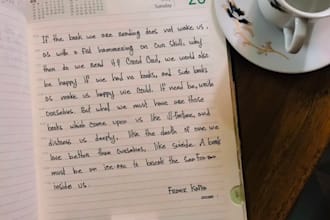 Sunday
If the book we are reading does not wake us,
as with a fist hammering on our skull, why
then do we read it? Good God, we would also
be happy if we had no books, and such books
as make us happy we could, If need be, write
ourselves. But what we must have are those
books which come upon us like ill-fortune, and
distress us deeply, like the death of one we
love better than ourselves, like suicide. A book
must be an ice-axe to break the sea frozen
inside us.
Franz Kafka